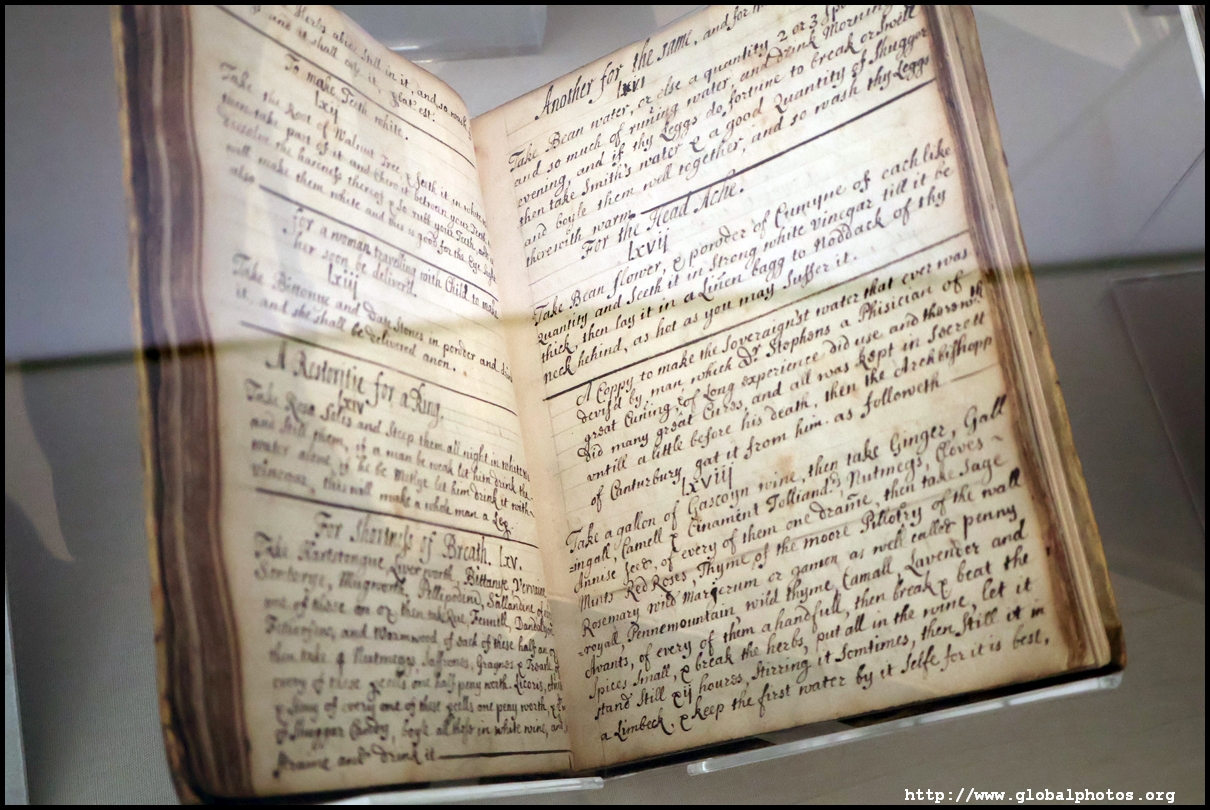 Herbs alive still in it, and so
and it shall
To make Teeth white.
lxij
Take the Root of Walnut Tree, & seeth it in
then take part of it and chew it between your Teeth
the hareness thereof & so rubb your Teeth
will make them white and this is good for the Eye
also
for a woman travelling with Child to make
her soon be deliver'd.
lxiij
Take Bittonye and Date Stones in powder and
it and she shall be delivered anon.
A Restoritie for a King.
lxiv
Take Rosa Solis and Steep them all night in
and Still them, if a man be weak let him drink the
water alone, if he be let him drink it with
this will make a whole man a Leg.
For Shortness of Breath. lxv.
Take Hartstongue, Liverworth, Bittanye,
Mugworth, Pellepodens,
one of these on or then take Rue, Fennill,
and Wormwood of each of these half an
then take 4 Nutmeges, Saffrone, Graynes &
every of these one half peny worth. Licoris,
& of every one of these one peny worth, &
of Shugger Candy, boyle all these in white wine, and
Straine and drink it
Another for the same, and for
lxvi
Take Bean water, or else a quantity 2 or 3
and so much of runing water, and drink Morning
evening, and if thy Leggs do fortune to break or swell
then take Smith's water & a good Quantity of Shugger
and boyle them well together, and so wash thy Leggs
therewith warm
For the Head Ache.
lxvij
Take Bean flower, & powder of Cumyne of each like
Quantity and Seeth it in Strong white vinegar till it be
thick, then lay it in a Linen bagg to Noddack of thy
neck behind, as hot as you may Suffer it.
A Coppy to make the Soveraignst water that ever was
devis'd by man, which Dr Stephens a Phisician of
great Cuning & of Long experience did use and therewth
did many great Cures, and all was kept in Secrett
untill a little before his death, then the Archbishopp
of Canturbury, gat it from him. as followeth
lxviij
Take a gallon of Gascoyn wine, then take Ginger, Gall
=ingall, Camell & Cinament Tolliand? Nutmegs, Cloves
Annise Seed, of every of them one drame, then take Sage
Mints Red Roses, Thyme of the moore Pillotry of the wall
Rosemary wild Margerum or gamen as well called penny
=royall, Pennemountain wild thyme Camall, Lavender and
Avants, of every of them a handfull, then break & beat the
Spices Small, & break the herbs, put all in the wine, let it
stand Still xij houres, Stirring it Somtimes, then Still it in
a Limbeck, & keep the first water by it Selfe for it is best,
http://www.globalphotos.org